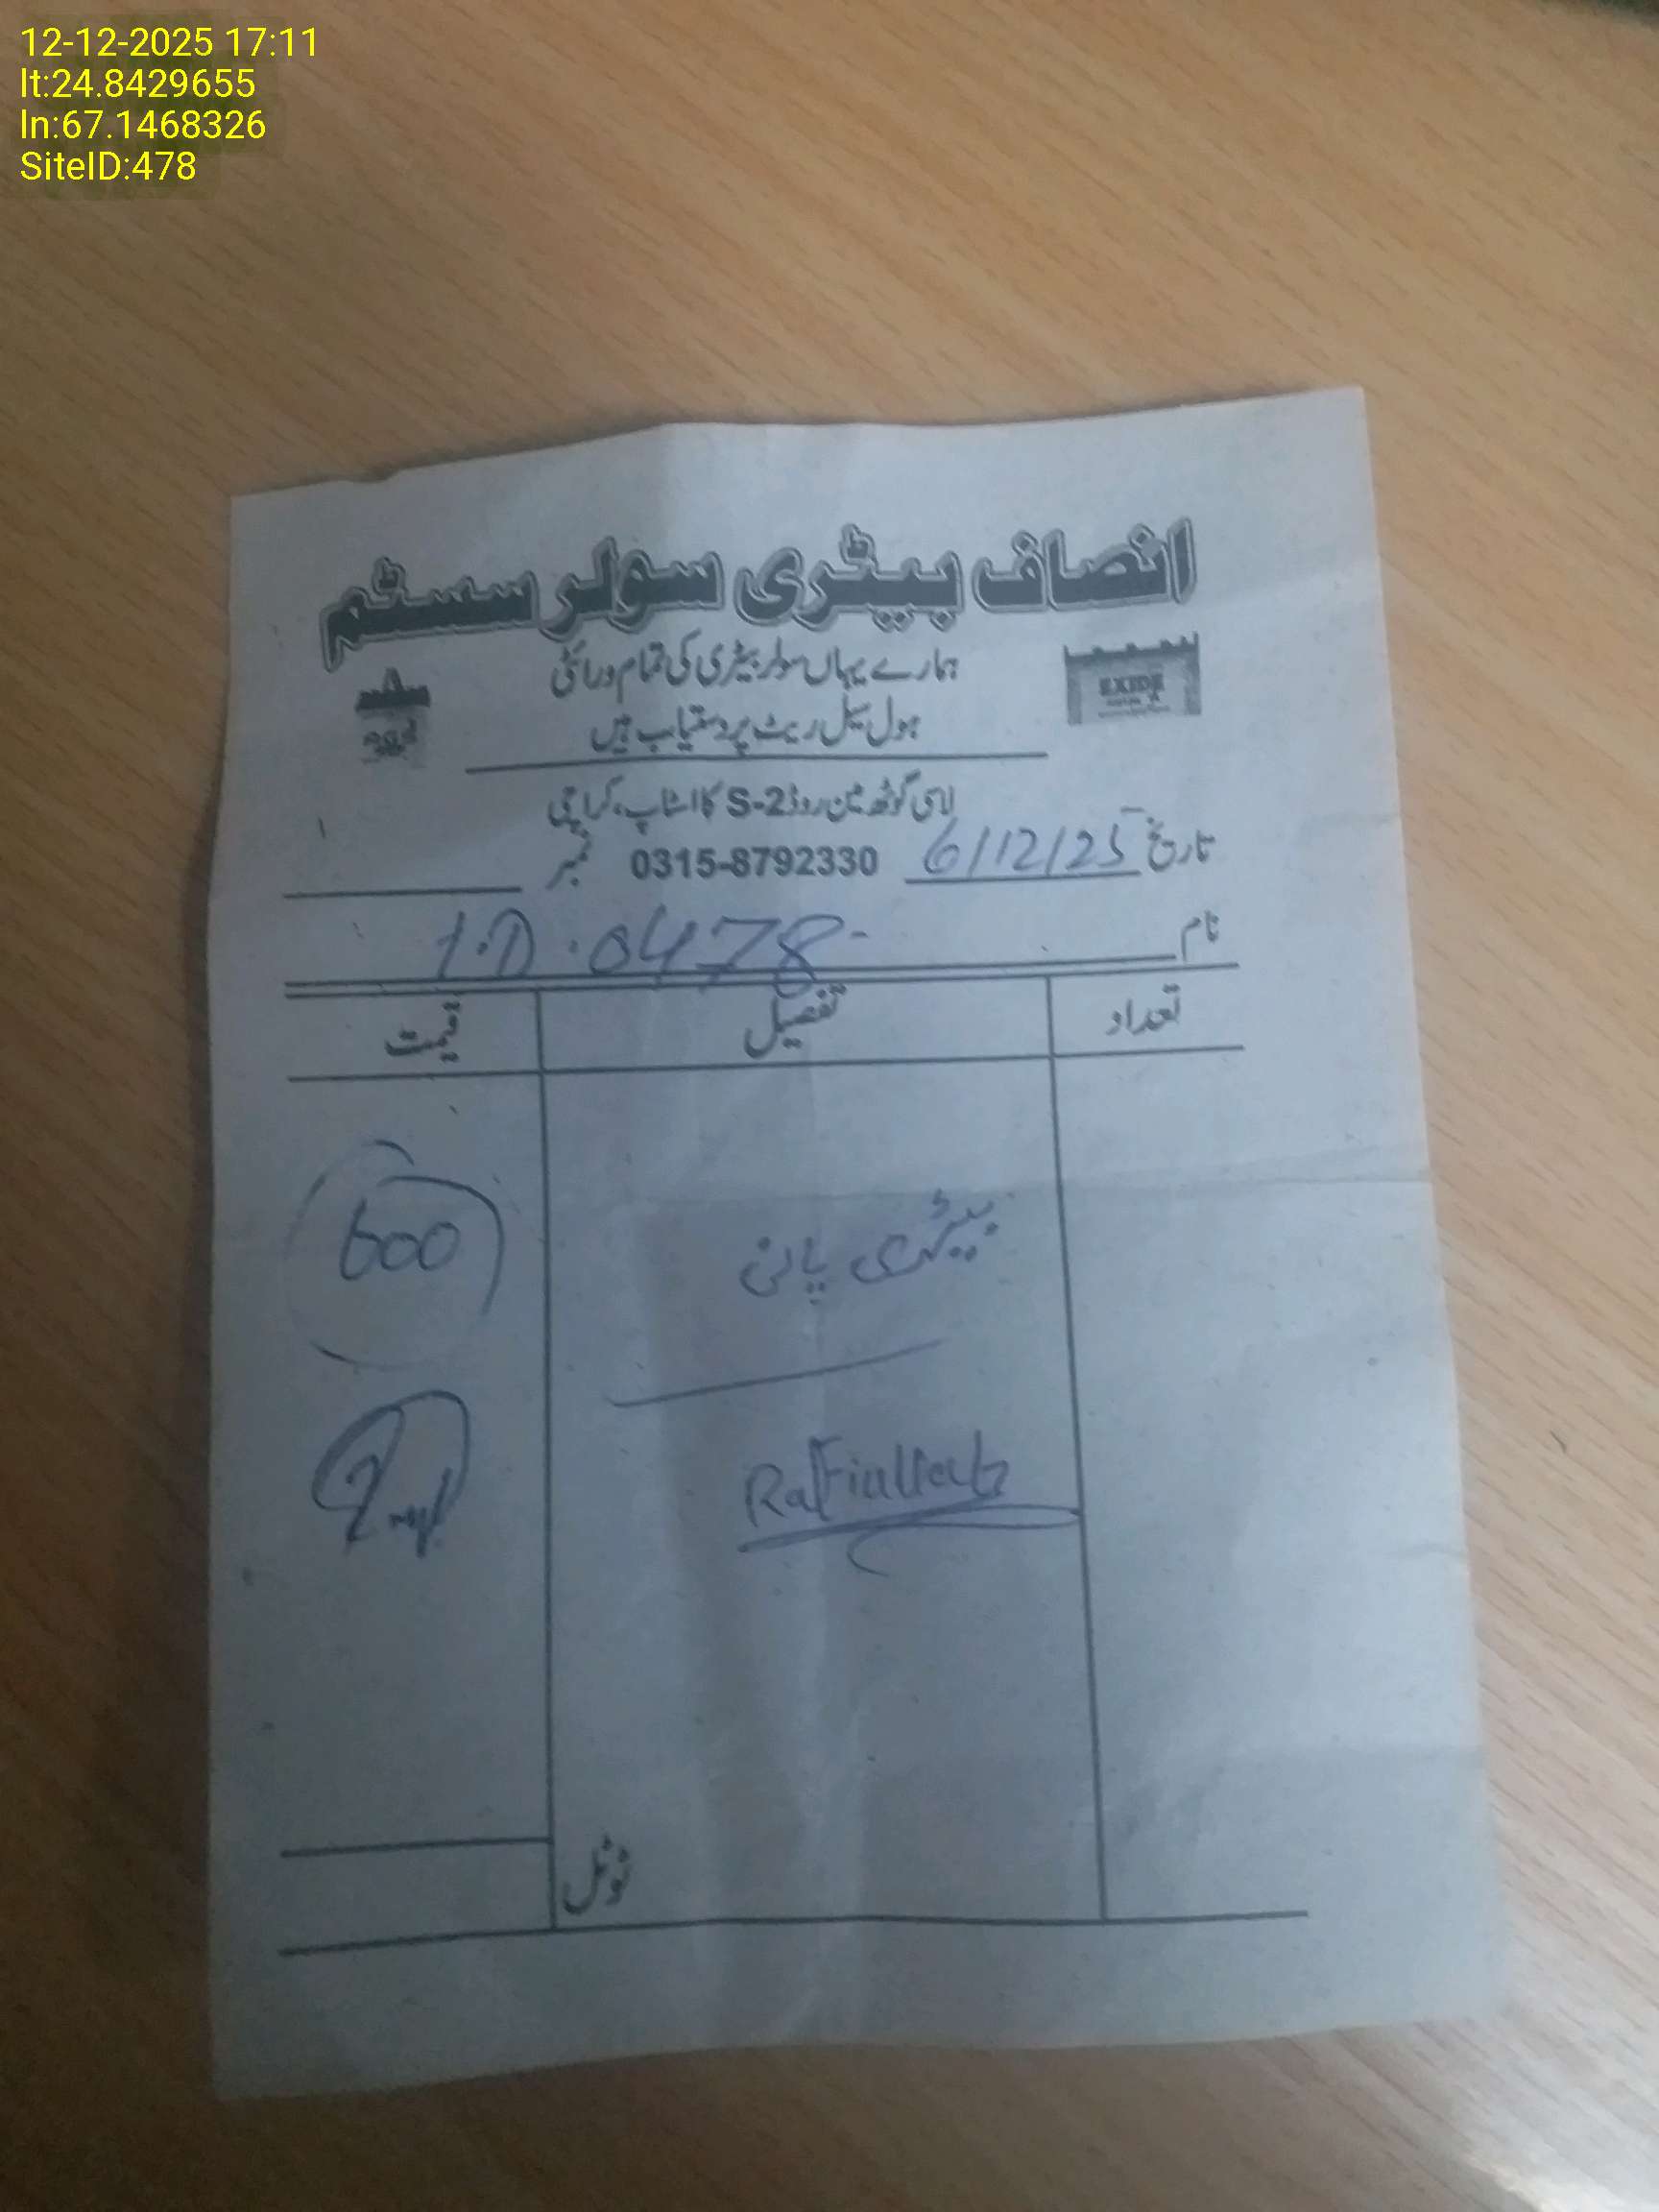 12-12-2025 17:11
lt:24.8429655
ln:67.1468326
SiteID:478
انصاف بیٹری سولر سسٹم
ہمارے یہاں سولر بیٹری کی تمام ورائٹی
ہول سیل ریٹ پر دستیاب ہیں
EXIDE
لاسی گوٹھ مین روڈ S-2 کا اسٹاپ، کراچی
تاریخ 6/12/25 0315-8792330 نمبر
نام I.D. 0478
تعداد تفصیل قیمت
بیٹری پانی 600
ٹوٹل